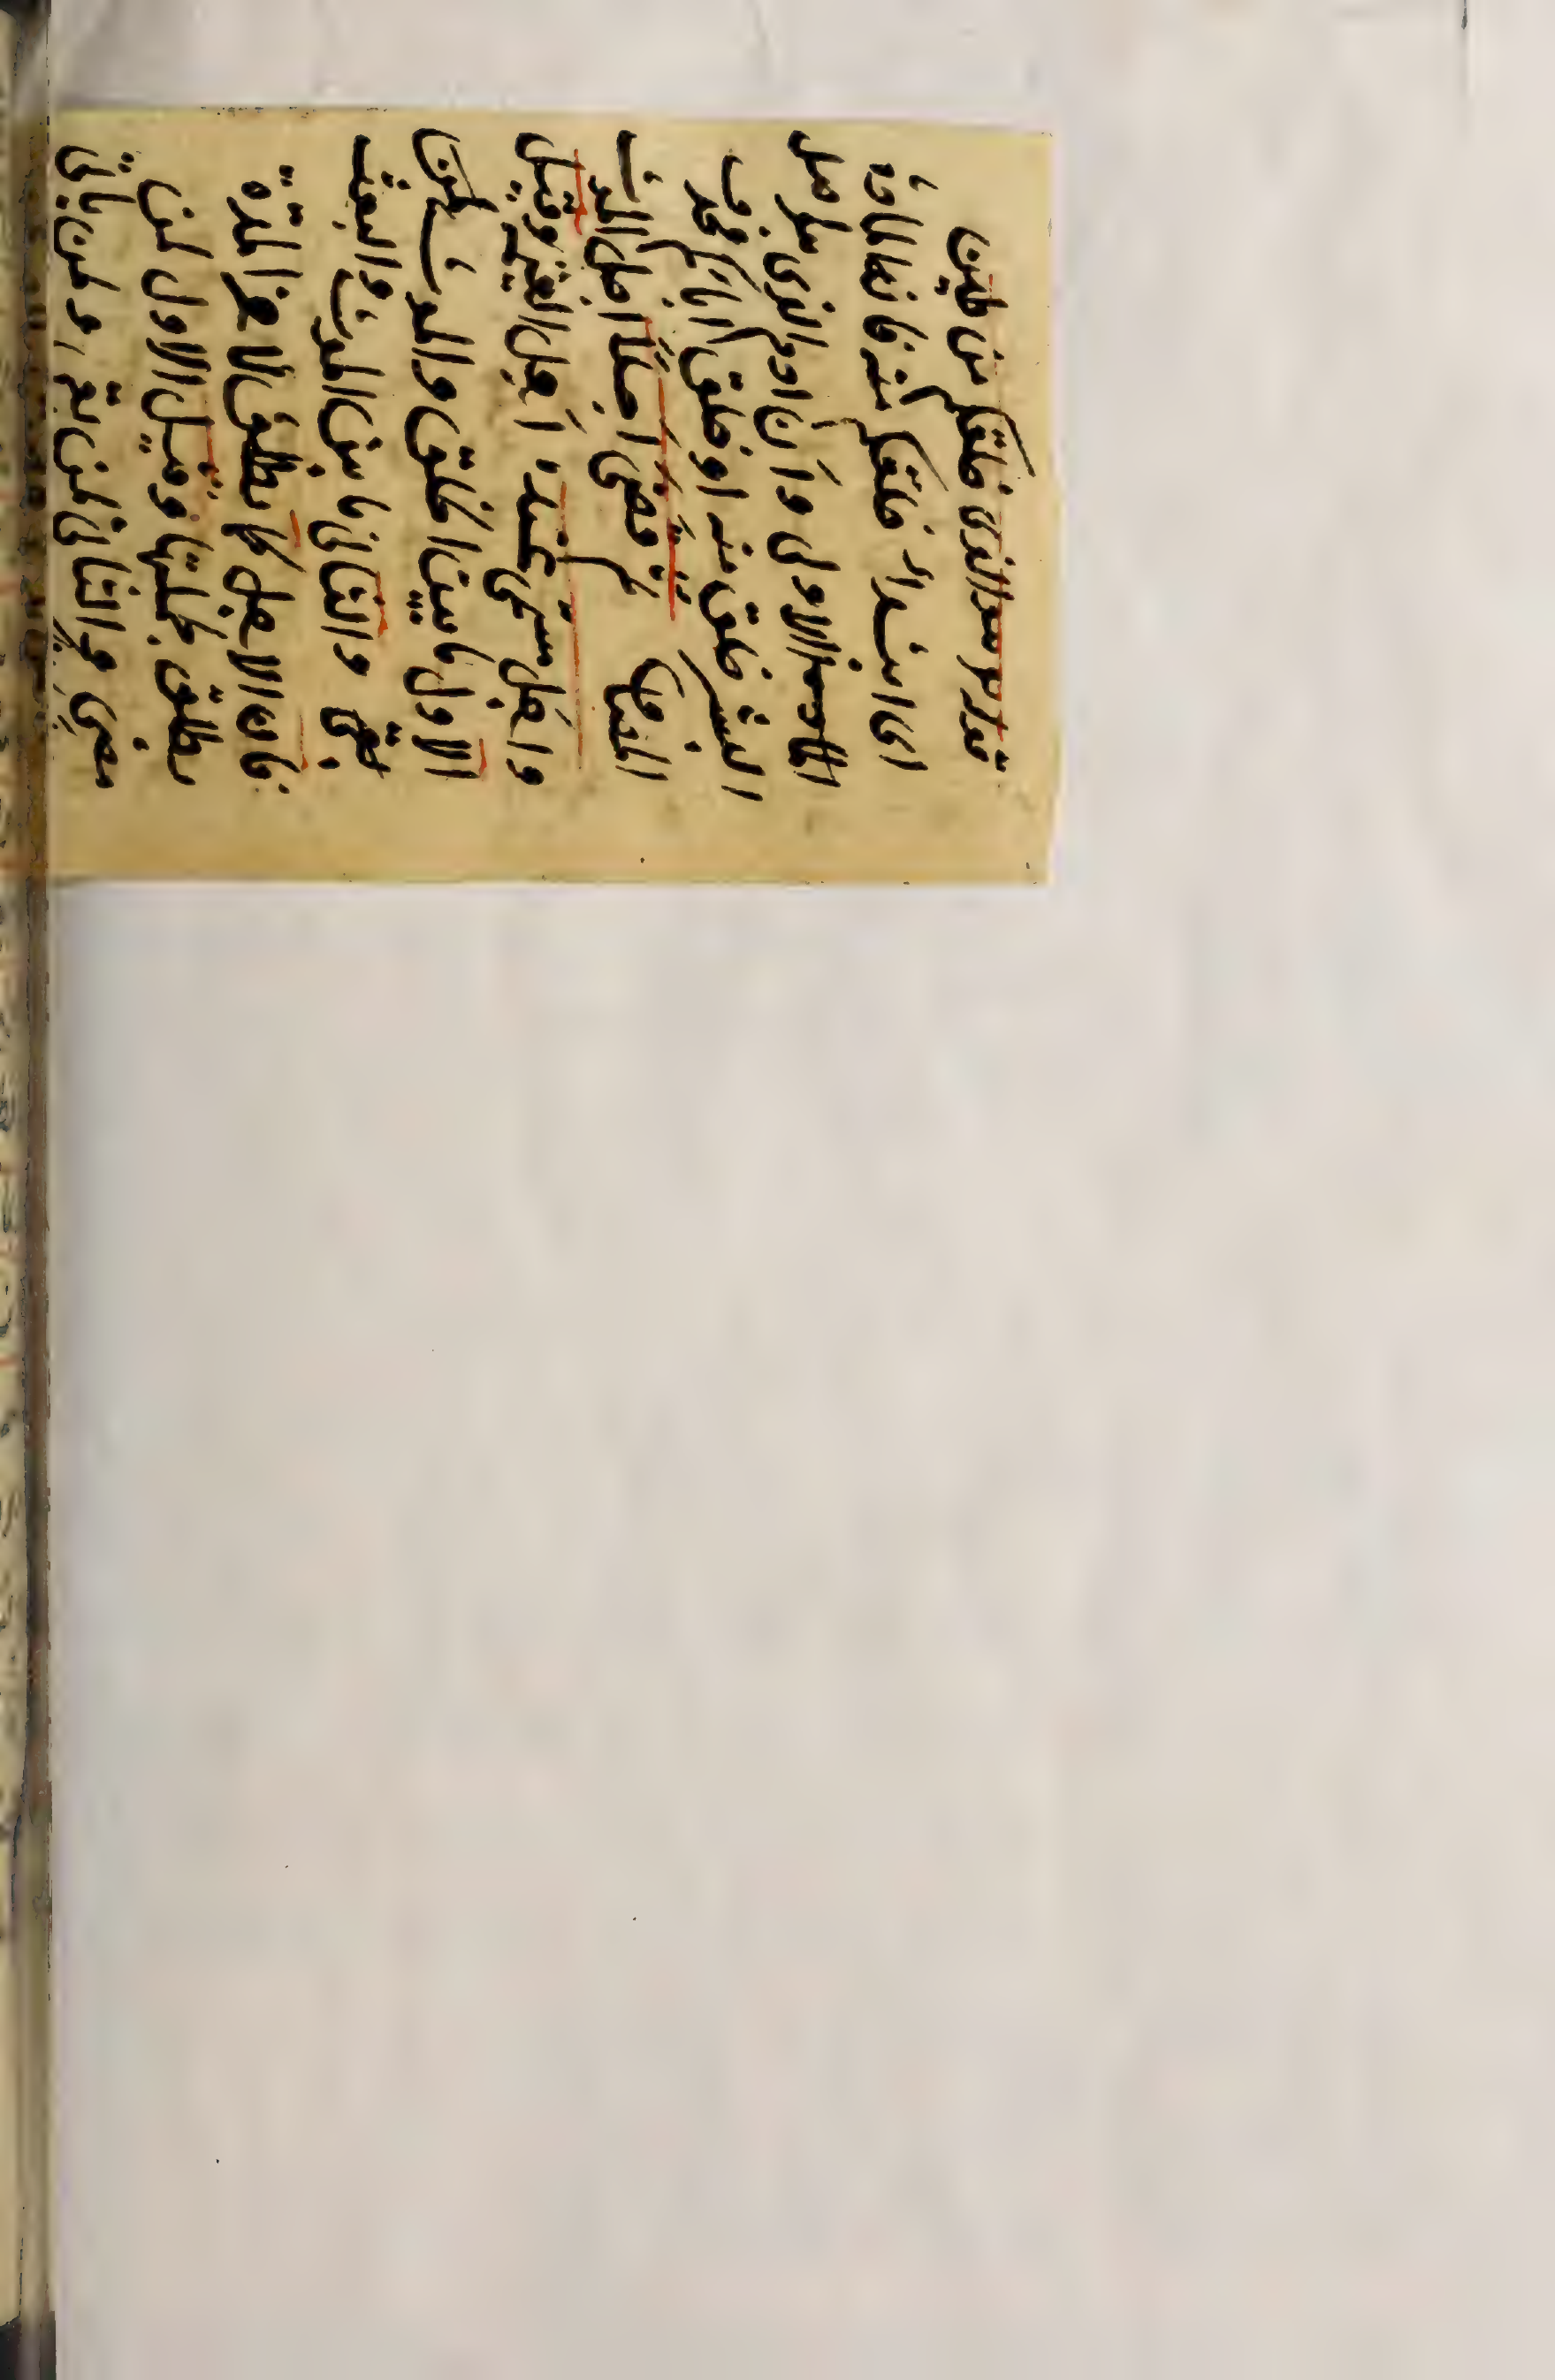 قوله هو الذى خلقكم من طين
اى ابتداء خلقكم منه فانه المادة
الاولى وان ادم الذى هو اصل
البشر خلق منه او خلق اباكم فحذف
المضاف ثم قضى اجلا اجل الموت
واجل مسمى عنده اجل القيمة وقيل
الاول ما بين الخلق والموت
والثانى ما بين الموت والبعث
فان الاجل كما يطلق لاخر المدة
يطلق لجملتها وقيل الاول لمن
مضى والثانى لمن بقى ولمن ياتى